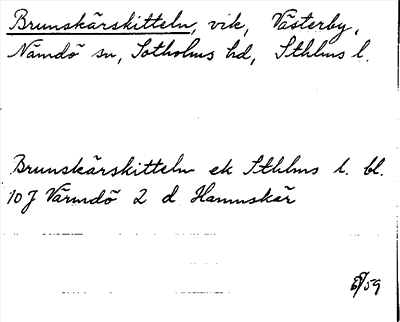 Brunskärskitteln, vik, Västerby,
Nämdö sn, Sotholms hd, Sthlms l.
Brunskärskitteln ek Sthlms l. bl.
10 J Värmdö 2 d Hamnskär
/59